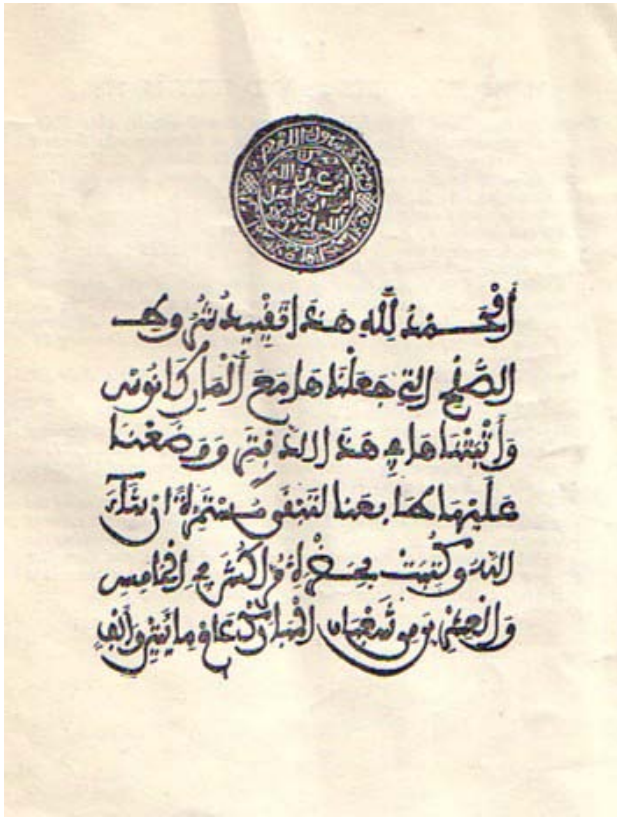 الحَمْدُ لِلَّهِ هَذَا تَقْيِيدُ شُرُوط
الصُّلْحِ التِي جَعَلْنَاهَا مَعَ اَلْمَارِكَانُوس
وَأَثْبَتْنَاهَا فِي هَذَا الدفتر وَوَضَعْنَا
عَلَيْهَا طابعنا لتَبْقَى مُسْتَمِرَّةً إن شَاءَ
اللهُ وَكُتِبَتْ بِحَضْرَةِ مُرَّاكُش في الخَامِس
وَالعِشْرِين من شَعْبَان المُبَارَك عَام مِائَتَيْن وَأَلْف